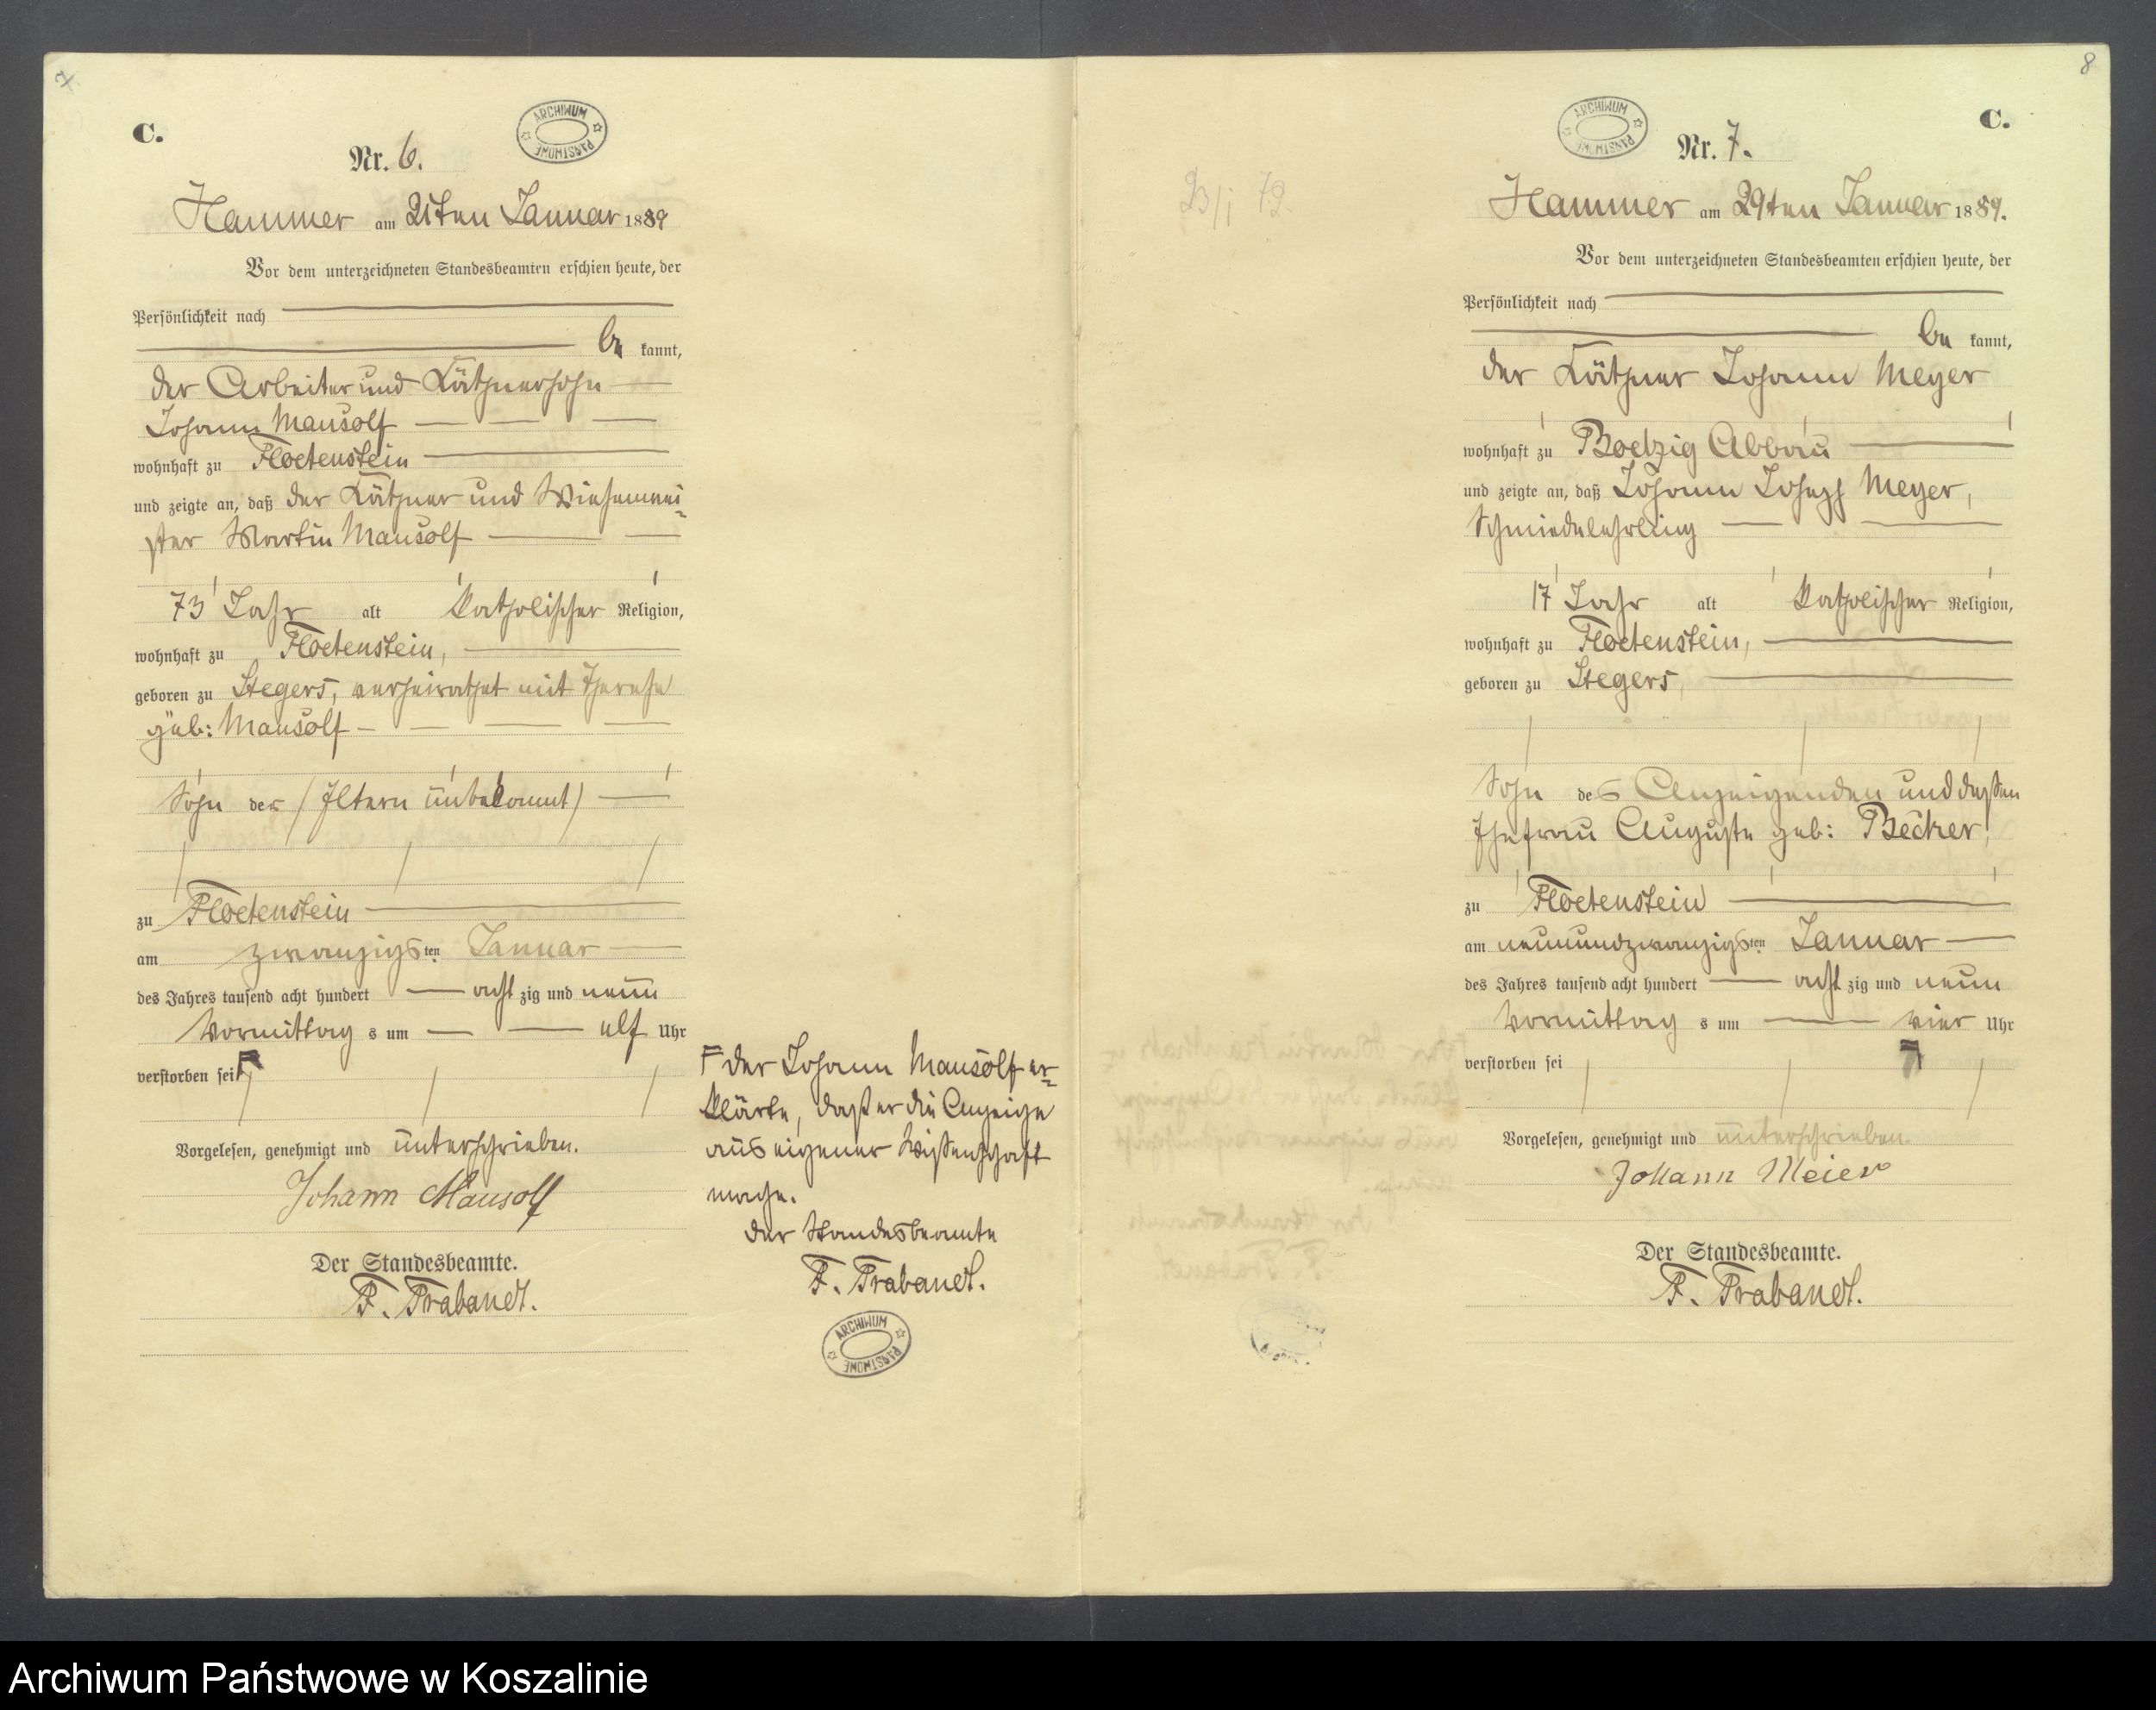 7.
C.
ARCHIWUM PAŃSTWOWE
Nr. 6.
Hammer am 21ten Januar 1889
Vor dem unterzeichneten Standesbeamten erschien heute, der
Persönlichkeit nach
be kannt,
der Arbeiter und Käthnersohn
Johann Mausolf
wohnhaft zu Floetenstein
und zeigte an, daß der Käthner und Wiesenmei=
ster Martin Mausolf
73 Jahr alt katholischer Religion,
wohnhaft zu Floetenstein,
geboren zu Stegers, verheirathet mit Therese
geb: Mausolf
Sohn der (Eltern unbekannt)
zu Floetenstein
am zwanzigsten Januar
des Jahres tausend acht hundert acht zig und neun
Vormittag s um elf Uhr
verstorben sei
Vorgelesen, genehmigt und unterschrieben.
Johann Mausolf
Der Standesbeamte.
F. Trabandt.
der Johann Mausolf er=
klärte, daß er die Anzeige
aus eigener Wissenschaft
mache.
Der Standesbeamte
F. Trabandt.
ARCHIWUM PAŃSTWOWE
8
C.
ARCHIWUM PAŃSTWOWE
Nr. 7.
Hammer am 29ten Januar 1889.
Vor dem unterzeichneten Standesbeamten erschien heute, der
Persönlichkeit nach
be kannt,
der Käthner Johann Meyer
wohnhaft zu Boelzig Abbau
und zeigte an, daß Johann Joseph Meyer,
Schmiedelehrling
17 Jahr alt katholischer Religion,
wohnhaft zu Floetenstein,
geboren zu Stegers,
Sohn des Anzeigenden und dessen
Ehefrau Auguste geb: Becker,
zu Floetenstein
am neunundzwanzigsten Januar
des Jahres tausend acht hundert acht zig und neun
Vormittag s um vier Uhr
verstorben sei
Vorgelesen, genehmigt und unterschrieben.
Johann Meier
Der Standesbeamte.
F. Trabandt.
Archiwum Państwowe w Koszalinie